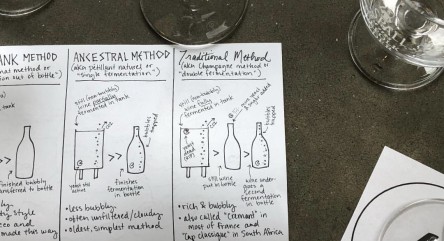 NK METHOD
method or
out of bottle")
tank
finished bubbly
transferred to bottle
style
and
made this way
ANCESTRAL METHOD
(aka pétillant naturel) or
"single fermentation")
still (non-bubbly)
wine partially
fermented in tank
CO2
bubbles
trapped
>>
yeast still
active
finishes
fermentation
in bottle
• less bubbly
• often unfiltered/cloudy
• oldest, simplest method
Traditional Method
(aka Champagne method or
"double fermentation")
still (non-bubbly)
wine fully
fermented in tank
CO2
more yeast
& sugar added
bubbles
trapped
yeast
dead
>>
>>
still wine
put in bottle
wine under-
goes a
second
fermentation
in bottle
• rich & bubbly
• also called "crémant" in
most of France and
"cap classique" in South Africa